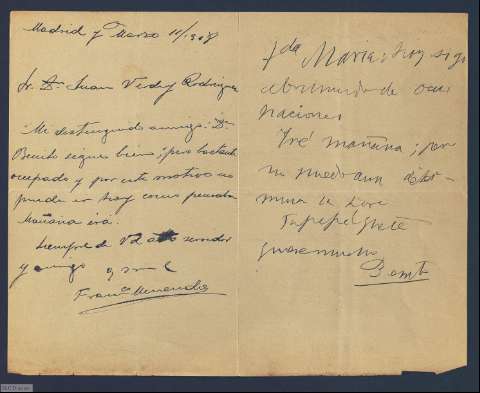 Madrid y Marzo 11/1908
Sr. Dn. Juan Vidy Rodriguez
Mi distinguido amigo: Dn.
Benito sigue bien; pero bastante
ocupado y por este motivo no
puede ir hoy como pensaba
Mañana irá.
Siempre de Vd atto servidor
y amigo q s m b
Franco Menendez
María: hoy sigo
abrumado de ocu
naciones
Iré mañana; pero
no puedo aun deter-
minar la hora
Tu pepépé qe te
quiere mucho
Benito